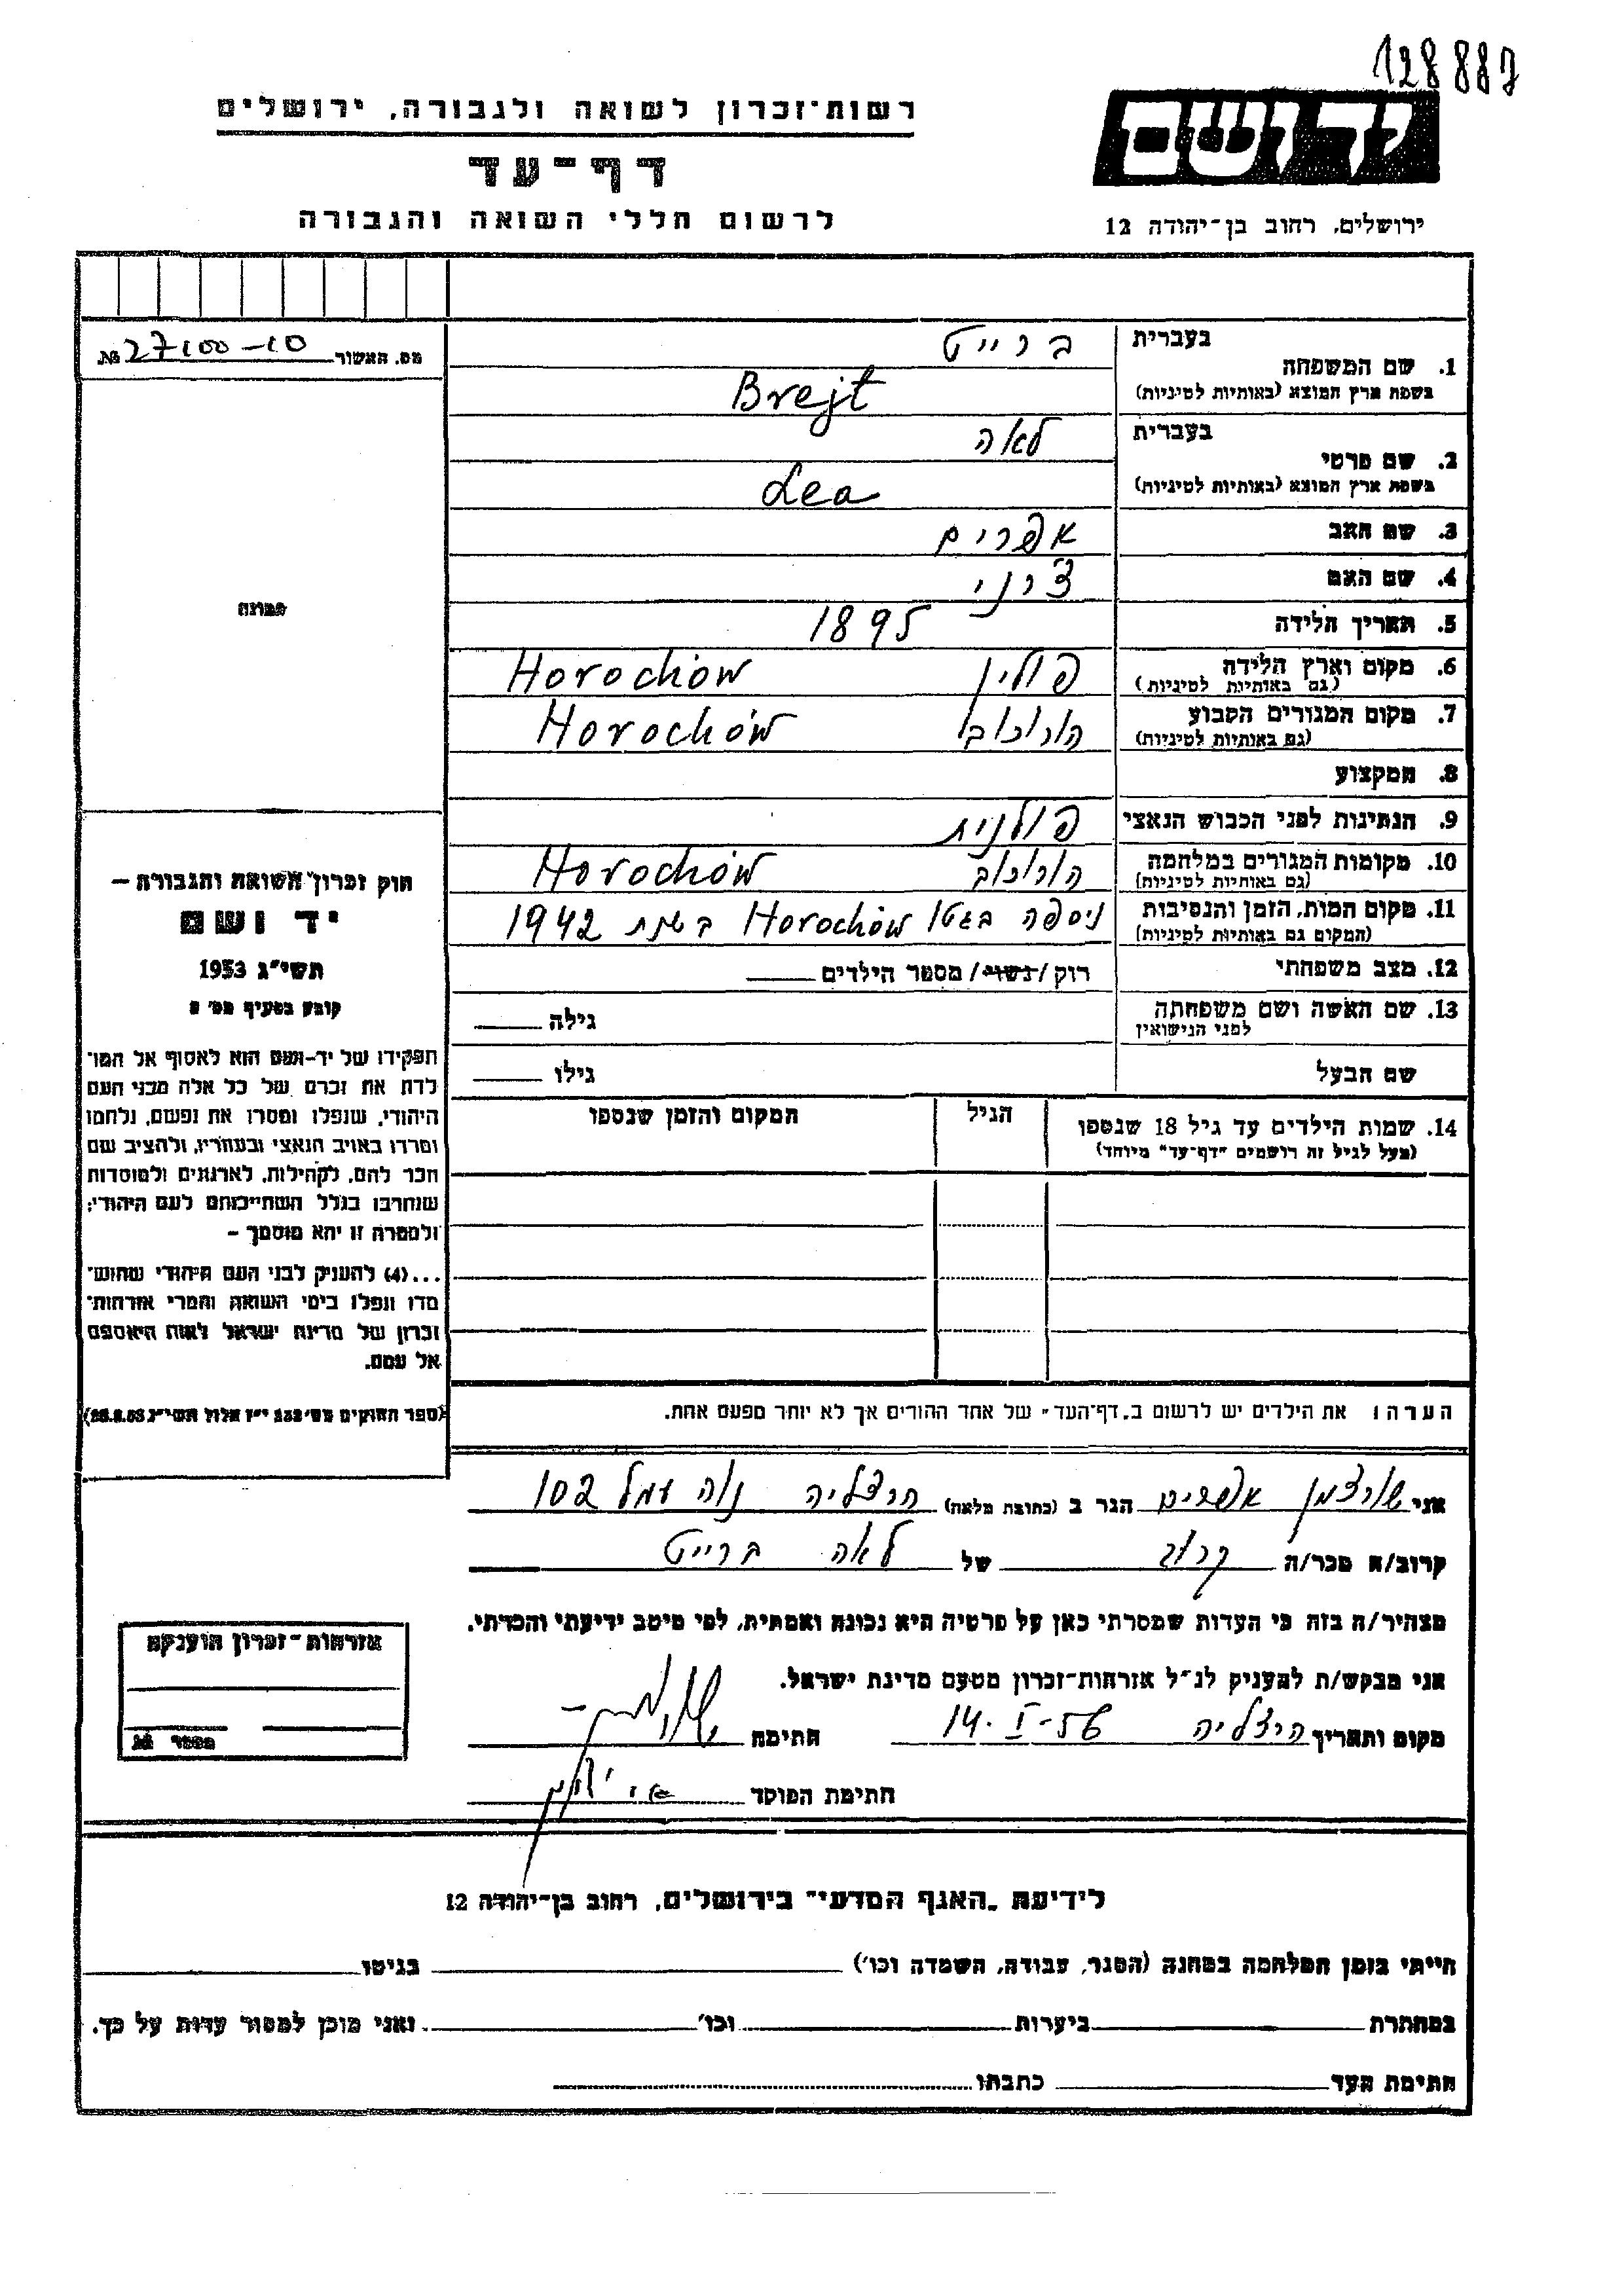 128887
רשות־זכרון לשואה ולגבורה, ירושלים
דף־עד
לרשום חללי השואה והגבורה
יד ושם
ירושלים, רחוב בן־יהודה 12
מס. האשור № 27100-10
1. שם המשפחה
בעברית ברייט
בשפת ארץ המוצא (באותיות לטיניות) Brejt
2. שם פרטי
בעברית לאה
בשפת ארץ המוצא (באותיות לטיניות) Lea
3. שם האב אפרים
4. שם האם
5. תאריך הלידה 1895
6. מקום וארץ הלידה פולין Horochów
(גם באותיות לטיניות)
7. מקום המגורים הקבוע הורוכוב Horochów
(גם באותיות לטיניות)
8. המקצוע
9. הנתינות לפני הכבוש הנאצי פולנית
10. מקומות המגורים במלחמה הורוכוב Horochów
(גם באותיות לטיניות)
11. מקום המות, הזמן והנסיבות ניספה בגטו Horochów בשנת 1942
(המקום גם באותיות לטיניות)
12. מצב משפחתי רוק/נשוי/ מספר הילדים
13. שם האשה ושם משפחתה
לפני הנישואין
גילה
שם הבעל גילו
14. שמות הילדים עד גיל 18 שנספו הגיל המקום והזמן שנספו
(מעל לגיל זה רושמים "דף־עד" מיוחד)
הערה: את הילדים יש לרשום ב"דף־העד" של אחד ההורים אך לא יותר מפעם אחת.
תמונה
חוק זכרון השואה והגבורה –
יד ושם
תשי"ג 1953
קובע בסעיף מס' 2
תפקידו של יד־ושם הוא לאסוף אל המו־
לדת את זכרם של כל אלה מבני העם
היהודי, שנפלו ומסרו את נפשם, נלחמו
ומרדו באויב הנאצי ובעוזריו, ולהציב שם
וזכר להם, לקהילות, לארגונים ולמוסדות
שנחרבו בגלל השתייכותם לעם היהודי;
ולמטרה זו יהא מוסמך –
...(4) להעניק לבני העם היהודי שהוש־
מדו ונפלו בימי השואה והמרי אזרחות־
זכרון של מדינת ישראל לאות היאספם
אל עמם.
(ספר החוקים מס' 132 י"ז אלול תשי"ג 28.8.53)
אני שורצמן אפרים הגר ב (כתובת מלאה) הרצליה נוה עמל 102
קרוב/ה מכר/ה קרוב של לאה ברייט
מצהיר/ה בזה כי העדות שמסרתי כאן על פרטיה היא נכונה ואמתית, לפי מיטב ידיעתי והכרתי.
אני מבקש/ת להעניק לנ"ל אזרחות־זכרון מטעם מדינת ישראל.
מקום ותאריך הרצליה 14-I-56 חתימה
חתימת הפוקד
אזרחות־זכרון הוענקה
מספר №
לידיעת "האגף המדעי" בירושלים, רחוב בן־יהודה 12
הייתי בזמן המלחמה במחנה (הסגר, עבודה, השמדה וכו') בגיטו
במחתרת ביערות וכו' ואני מוכן למסור עדות על כך.
חתימת העד כתבתו